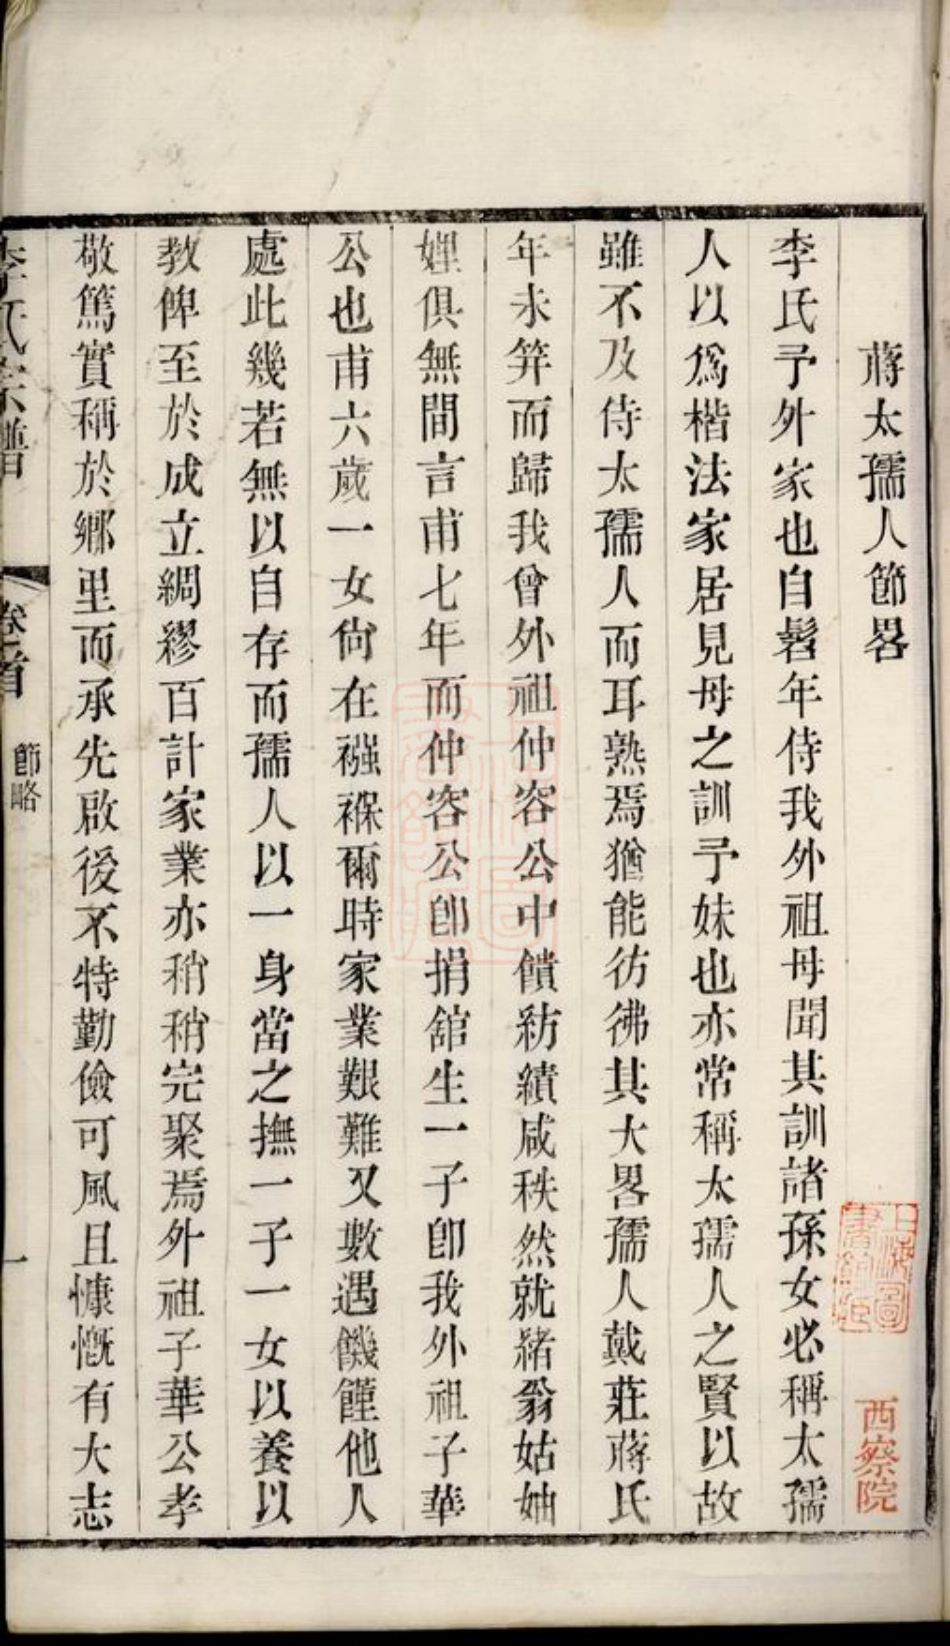 蔣太孺人節畧
李氏予外家也自髫年侍我外祖母聞其訓諸孫女必稱太孺
人以爲楷法家居見母之訓予妹也亦常稱太孺人之賢以故
雖不及侍太孺人而耳熟焉猶能彷彿其大畧孺人戴莊蔣氏
年未笄而歸我曾外祖仲容公中饋紡績咸秩然就緒翁姑妯
娌俱無間言甫七年而仲容公卽捐舘生一子卽我外祖子華
公也甫六歲一女尙在襁褓爾時家業艱難又數遇饑饉他人
處此幾若無以自存而孺人以一身當之撫一子一女以養以
教俾至於成立綢繆百計家業亦稍稍完聚焉外祖子華公孝
敬篤實稱於鄉里而承先啟後不特勤儉可風且慷慨有大志
李氏宗譜
卷之首
節略
一
上海圖書館藏
西察院
上海圖書館藏